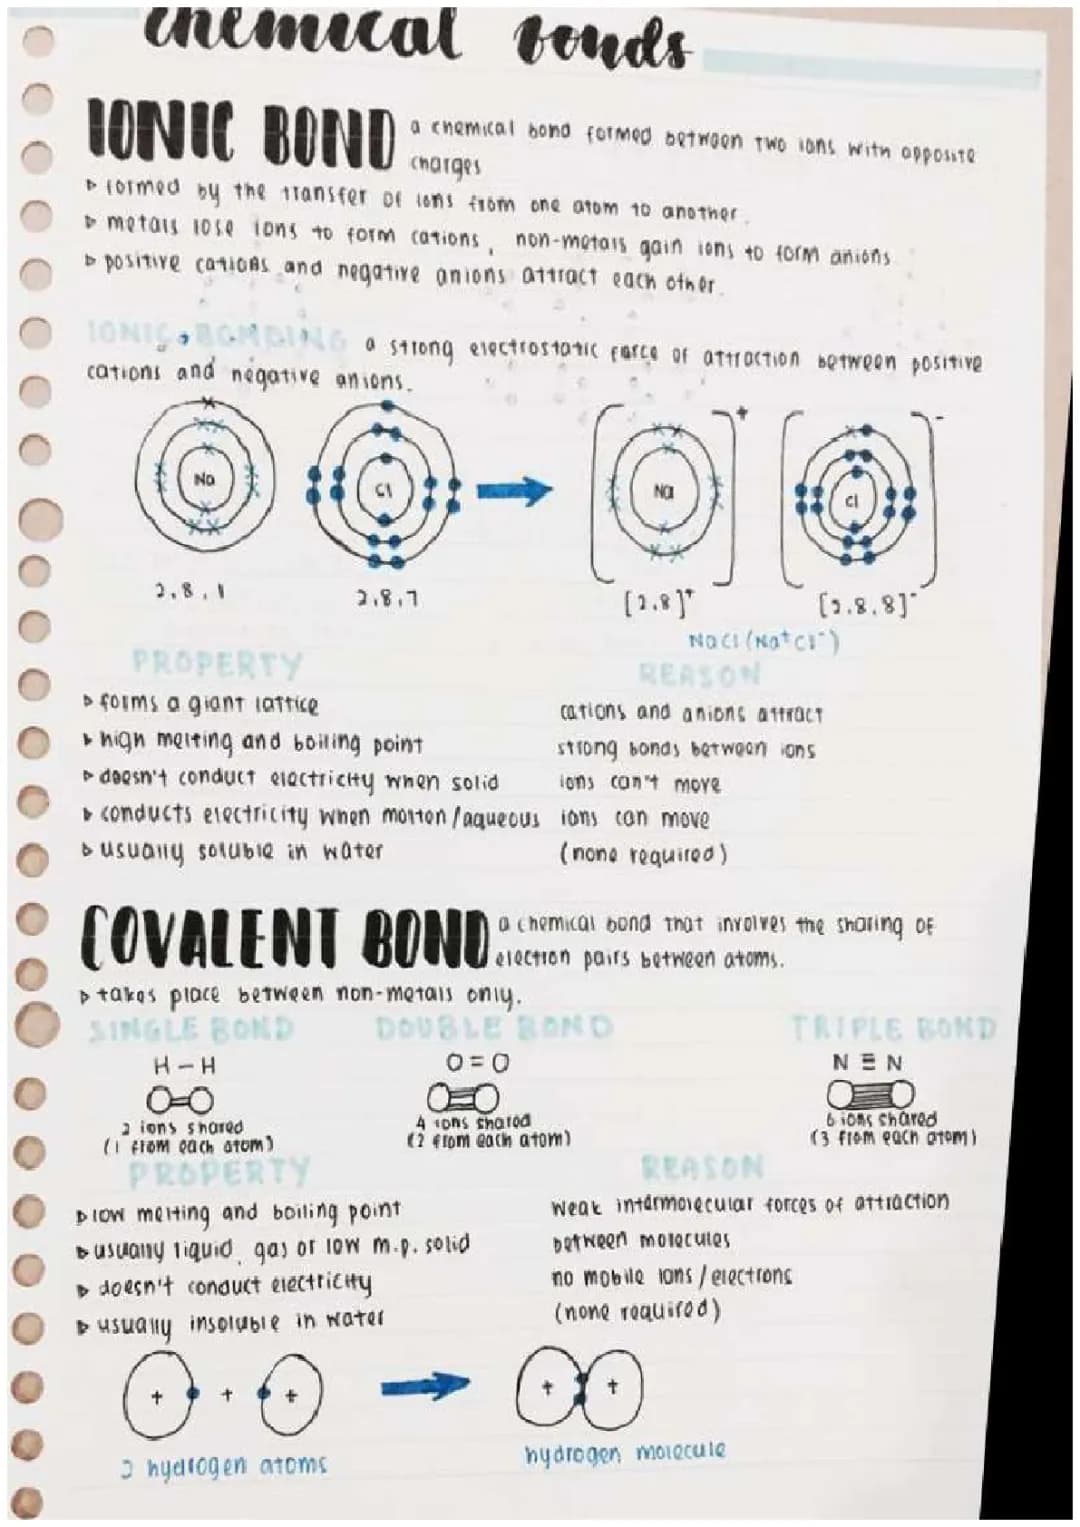 chemical bonds
IONIC BOND a chemical bond formed between two ions with opposite
charges
▷ formed by the transfer of ions from one atom to another.
▷ metals lose ions to form cations, non-metals gain ions to form anions
▷ positive cations and negative anions attract each other.
IONIC BONDING a strong electrostatic force of attraction between positive
cations and negative anions.
Na Cl Na + Cl -
2,8,1 2,8,7 [2.8]+ [2.8.8]-
NaCl (Na+Cl-)
PROPERTY REASON
▷ forms a giant lattice cations and anions attract
▷ high melting and boiling point strong bonds between ions
▷ doesn't conduct electricity when solid ions can't move
▷ conducts electricity when molten/aqueous ions can move
▷ usually soluble in water (none required)
COVALENT BOND a chemical bond that involves the sharing of
electron pairs between atoms.
▷ takes place between non-metals only.
SINGLE BOND DOUBLE BOND TRIPLE BOND
H - H O = O N ≡ N
2 ions shared 4 ions shared 6 ions shared
(1 from each atom) (2 from each atom) (3 from each atom)
PROPERTY REASON
▷ low melting and boiling point weak intermolecular forces of attraction
▷ usually liquid, gas or low m.p. solid between molecules
▷ doesn't conduct electricity no mobile ions/electrons
▷ usually insoluble in water (none required)
+ + + + +
2 hydrogen atoms hydrogen molecule